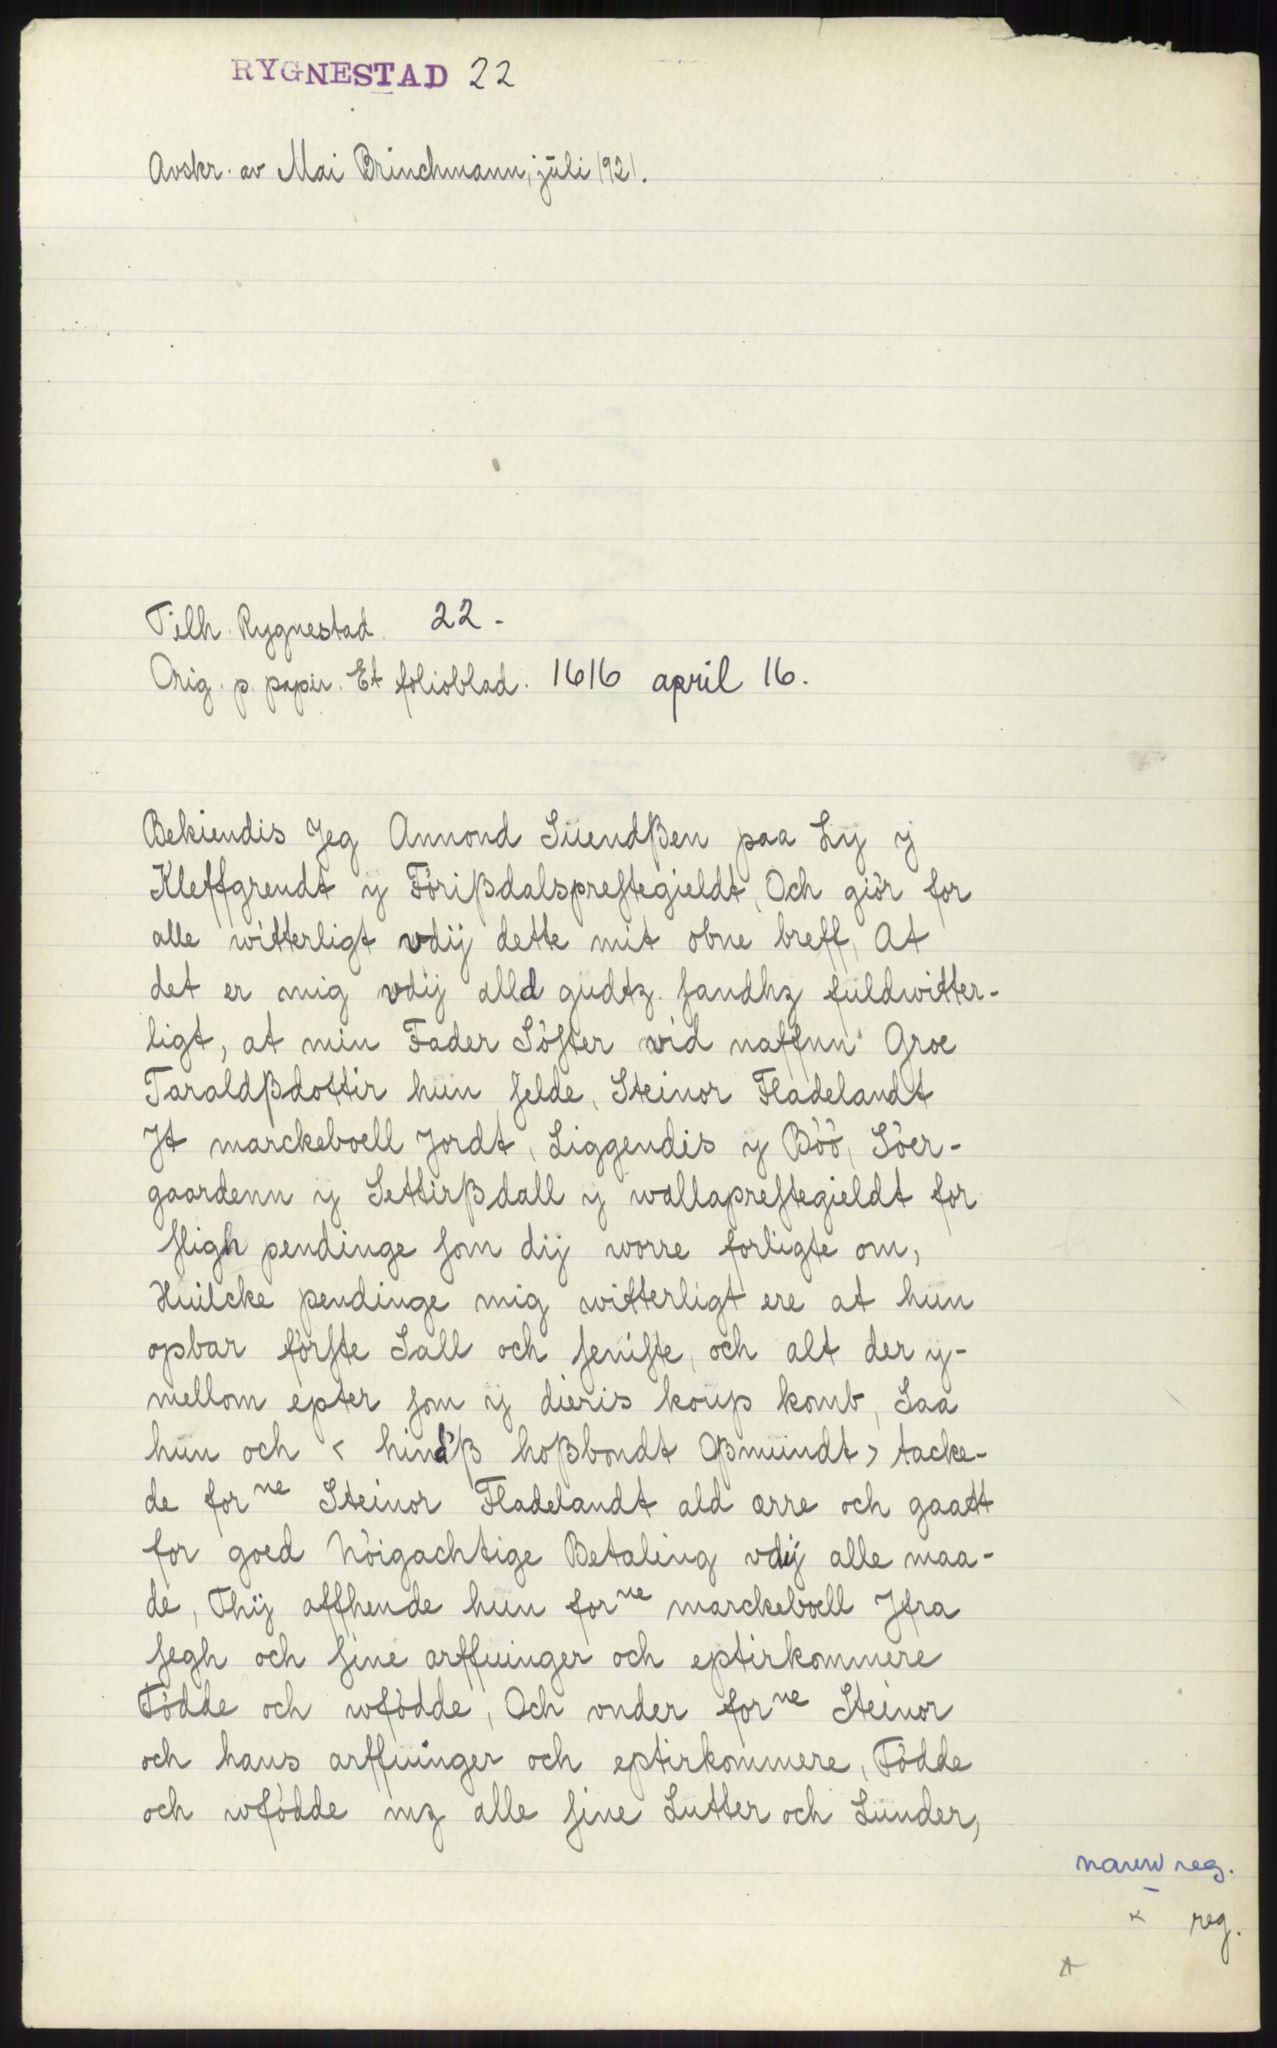 RYGNESTAD 22
Avskr. av Mai Brinchmann, juli 1921.
Tilh. Rygnestad. 22 -
Orig. p. papir. Et folioblad. 1616 april 16.
Bekiendis Jeg Anmond Süendßen paa Ly y
Kleffgrendt ÿ Förißdalspreſtegieldt, Och giör for
alle witterligt vdÿ dette mit obne breff, At
det er mig vdÿ alld gudtz ſandhz fuldwitter-
ligt, at min Fader Söſter vid naffnn Groe
Taraldßdottir hun ſelde, Steinor Fladelandt
Jt marckeboell Jordt, Liggendis y Böö, Söer-
gaardenn y Settirßdall y wallapreſtegieldt for
ſligh pendinge ſom dÿ worre forligte om,
Huilcke pendinge mig witterligt ere at hun
opbar förſte Sall och ſeniſte, och alt der y-
mellom epter ſom ÿ dieris koup komb, Saa
hun och < hindß hoßbondt Oßmundt > tacke-
de forne Steinor Fladelandt ald ærre och gaatt
for goed Nöigachtige Betaling vdÿ alle maa-
de, Thÿ affhende hun forne marckeboell Jfra
ſegh och ſine arffuinger och eptirkommere
Födde och wfödde, Och vnder forne Steinor
och hans arffuinger och eptirkommere, Födde
och wfödde mz alle ſine Lutter och Lunder,
navne reg.
x reg.